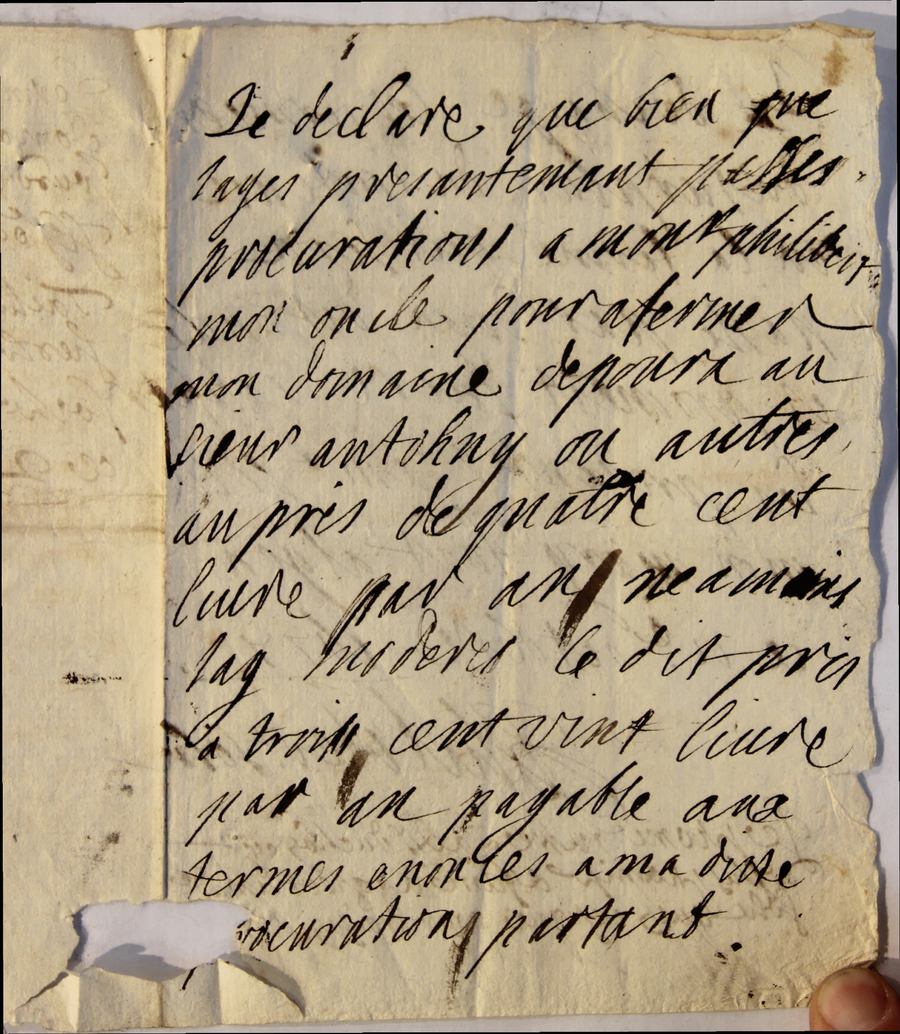 Je declare que bien que
layes presantemant passer
procurations a monr philibert
mon oncle pour afermer
mon domaine depoura au
sieur antohny ou autres
au pris de quatre cent
livre par an neamoins
lay moderes le dit pris
a trois cent vint livre
par an payable aux
termes enonces a ma ditte
procuration partant